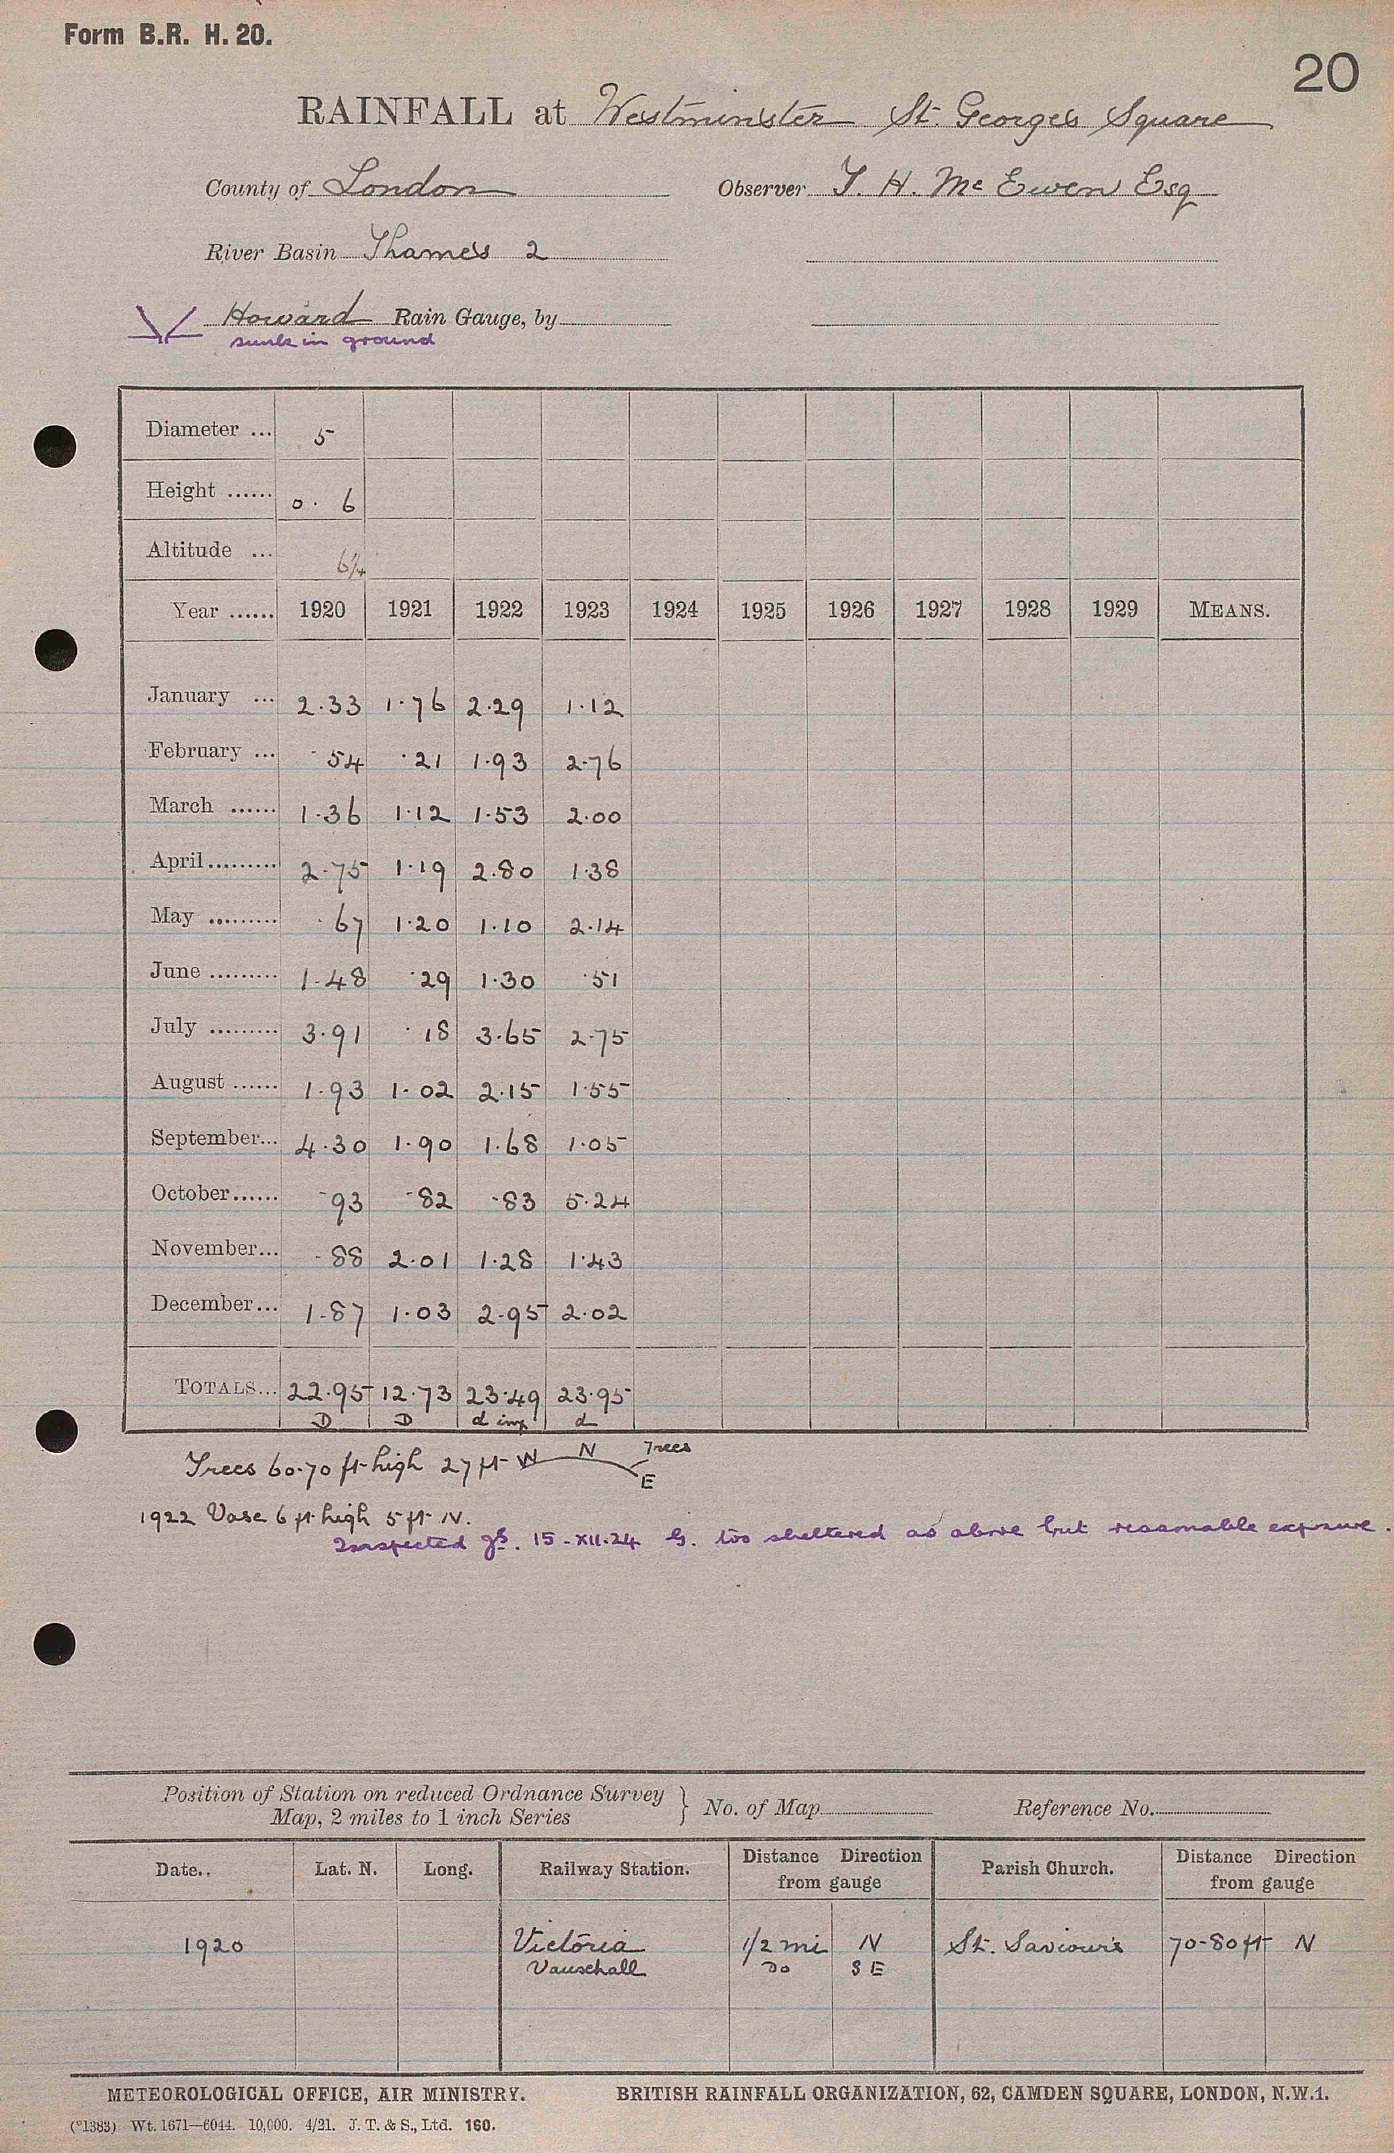 Form B.R. H. 20.
20
RAINFALL at Westminster St. Georges Square
County of London Observer T. H. Mc Ewen Esq
River Basin Thames 2
Howard Rain Gauge, by
sunk in ground
Diameter ... 5
Height ...... 0. 6
Altitude ...
Year ...... 1920 1921 1922 1923 1924 1925 1926 1927 1928 1929 MEANS.
January ... 2.33 1.76 2.29 1.12
February ... .54 .21 1.93 2.76
March ...... 1.36 1.12 1.53 2.00
April......... 2.75 1.19 2.80 1.38
May ......... .67 1.20 1.10 2.14
June ......... 1.48 .29 1.30 .51
July ......... 3.91 .18 3.65 2.75
August ...... 1.93 1.02 2.15 1.55
September... 4.30 1.90 1.68 1.05
October...... .93 .82 .83 5.24
November... .88 2.01 1.28 1.43
December... 1.87 1.03 2.95 2.02
TOTALS... 22.95 12.73 23.49 23.95
D D d imp d
Trees 60-70 ft high 27 ft W N E Trees
1922 Vase 6 ft high 5 ft N.
Inspected 15-XII-24 G. too sheltered as above but reasonable exposure.
Position of Station on reduced Ordnance Survey
Map, 2 miles to 1 inch Series } No. of Map Reference No.
Date.. Lat. N. Long. Railway Station. Distance Direction from gauge Parish Church. Distance Direction from gauge
1920 Victoria 1/2 mi N St. Saviour's 70-80 ft N
Vauxhall Do S E
METEOROLOGICAL OFFICE, AIR MINISTRY. BRITISH RAINFALL ORGANIZATION, 62, CAMDEN SQUARE, LONDON, N.W.1.
(*1383) Wt. 1671—6044. 10,000. 4/21. J. T. & S., Ltd. 160.